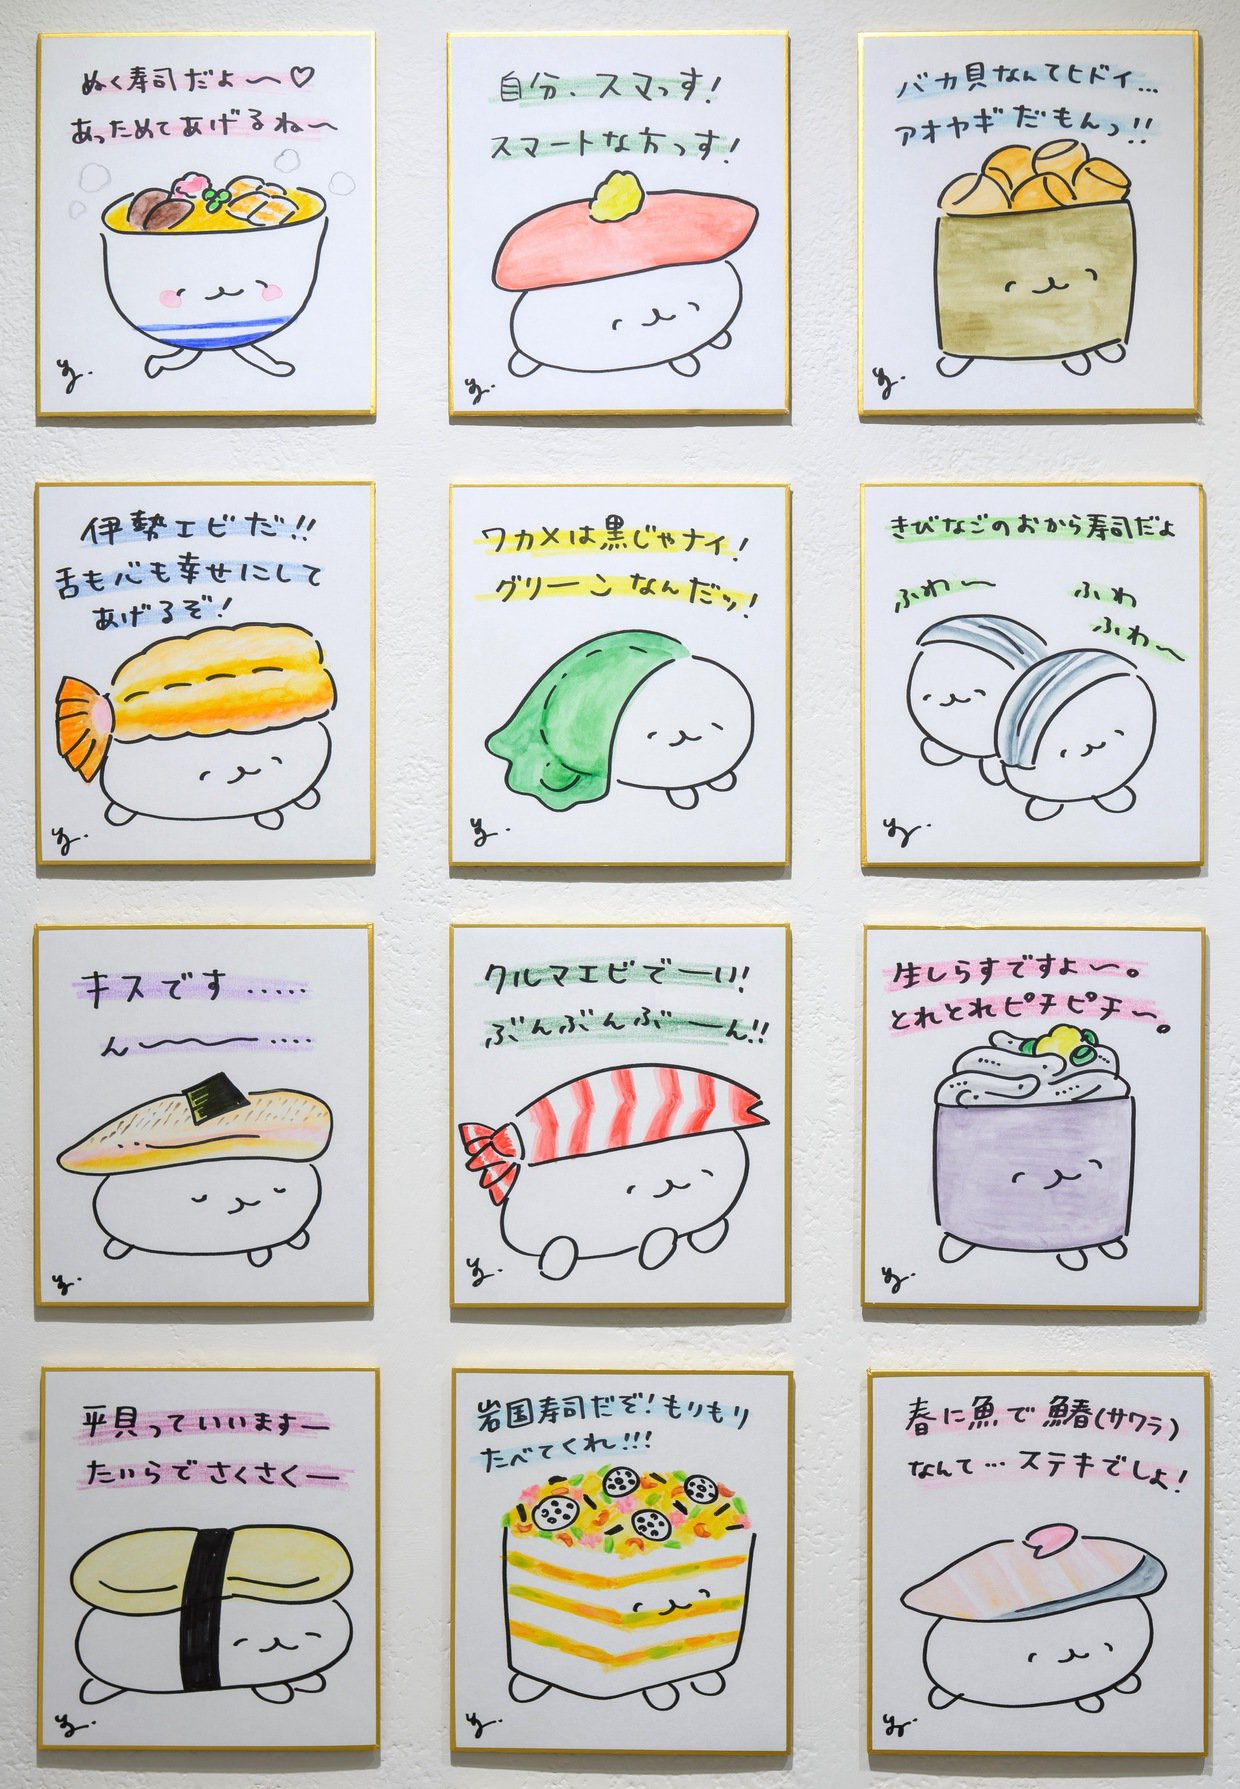 ぬく寿司だよ〜♡
あっためてあげるね〜
y.
自分、スマっす!
スマートな方っす!
y.
バカ貝なんてヒドイ...
アオヤギだもんっ!!
y.
伊勢エビだ!!
舌も心も幸せにして
あげるぞ!
y.
ワカメは黒じゃナイ!
グリーンなんだッ!
y.
きびなごのおから寿司だよ
ふわ〜
ふわ
ふわ〜
y.
キスです.....
ん〜〜....
y.
クルマエビでーい!
ぶんぶんぶーん!!
y.
生しらすですよ〜。
とれとれピチピチ〜。
y.
平貝っていいますー
たいらでさくさくー
y.
岩国寿司だぞ!もりもり
たべてくれ!!!
y.
春に魚で鰆(サワラ)
なんて…ステキでしょ!
y.